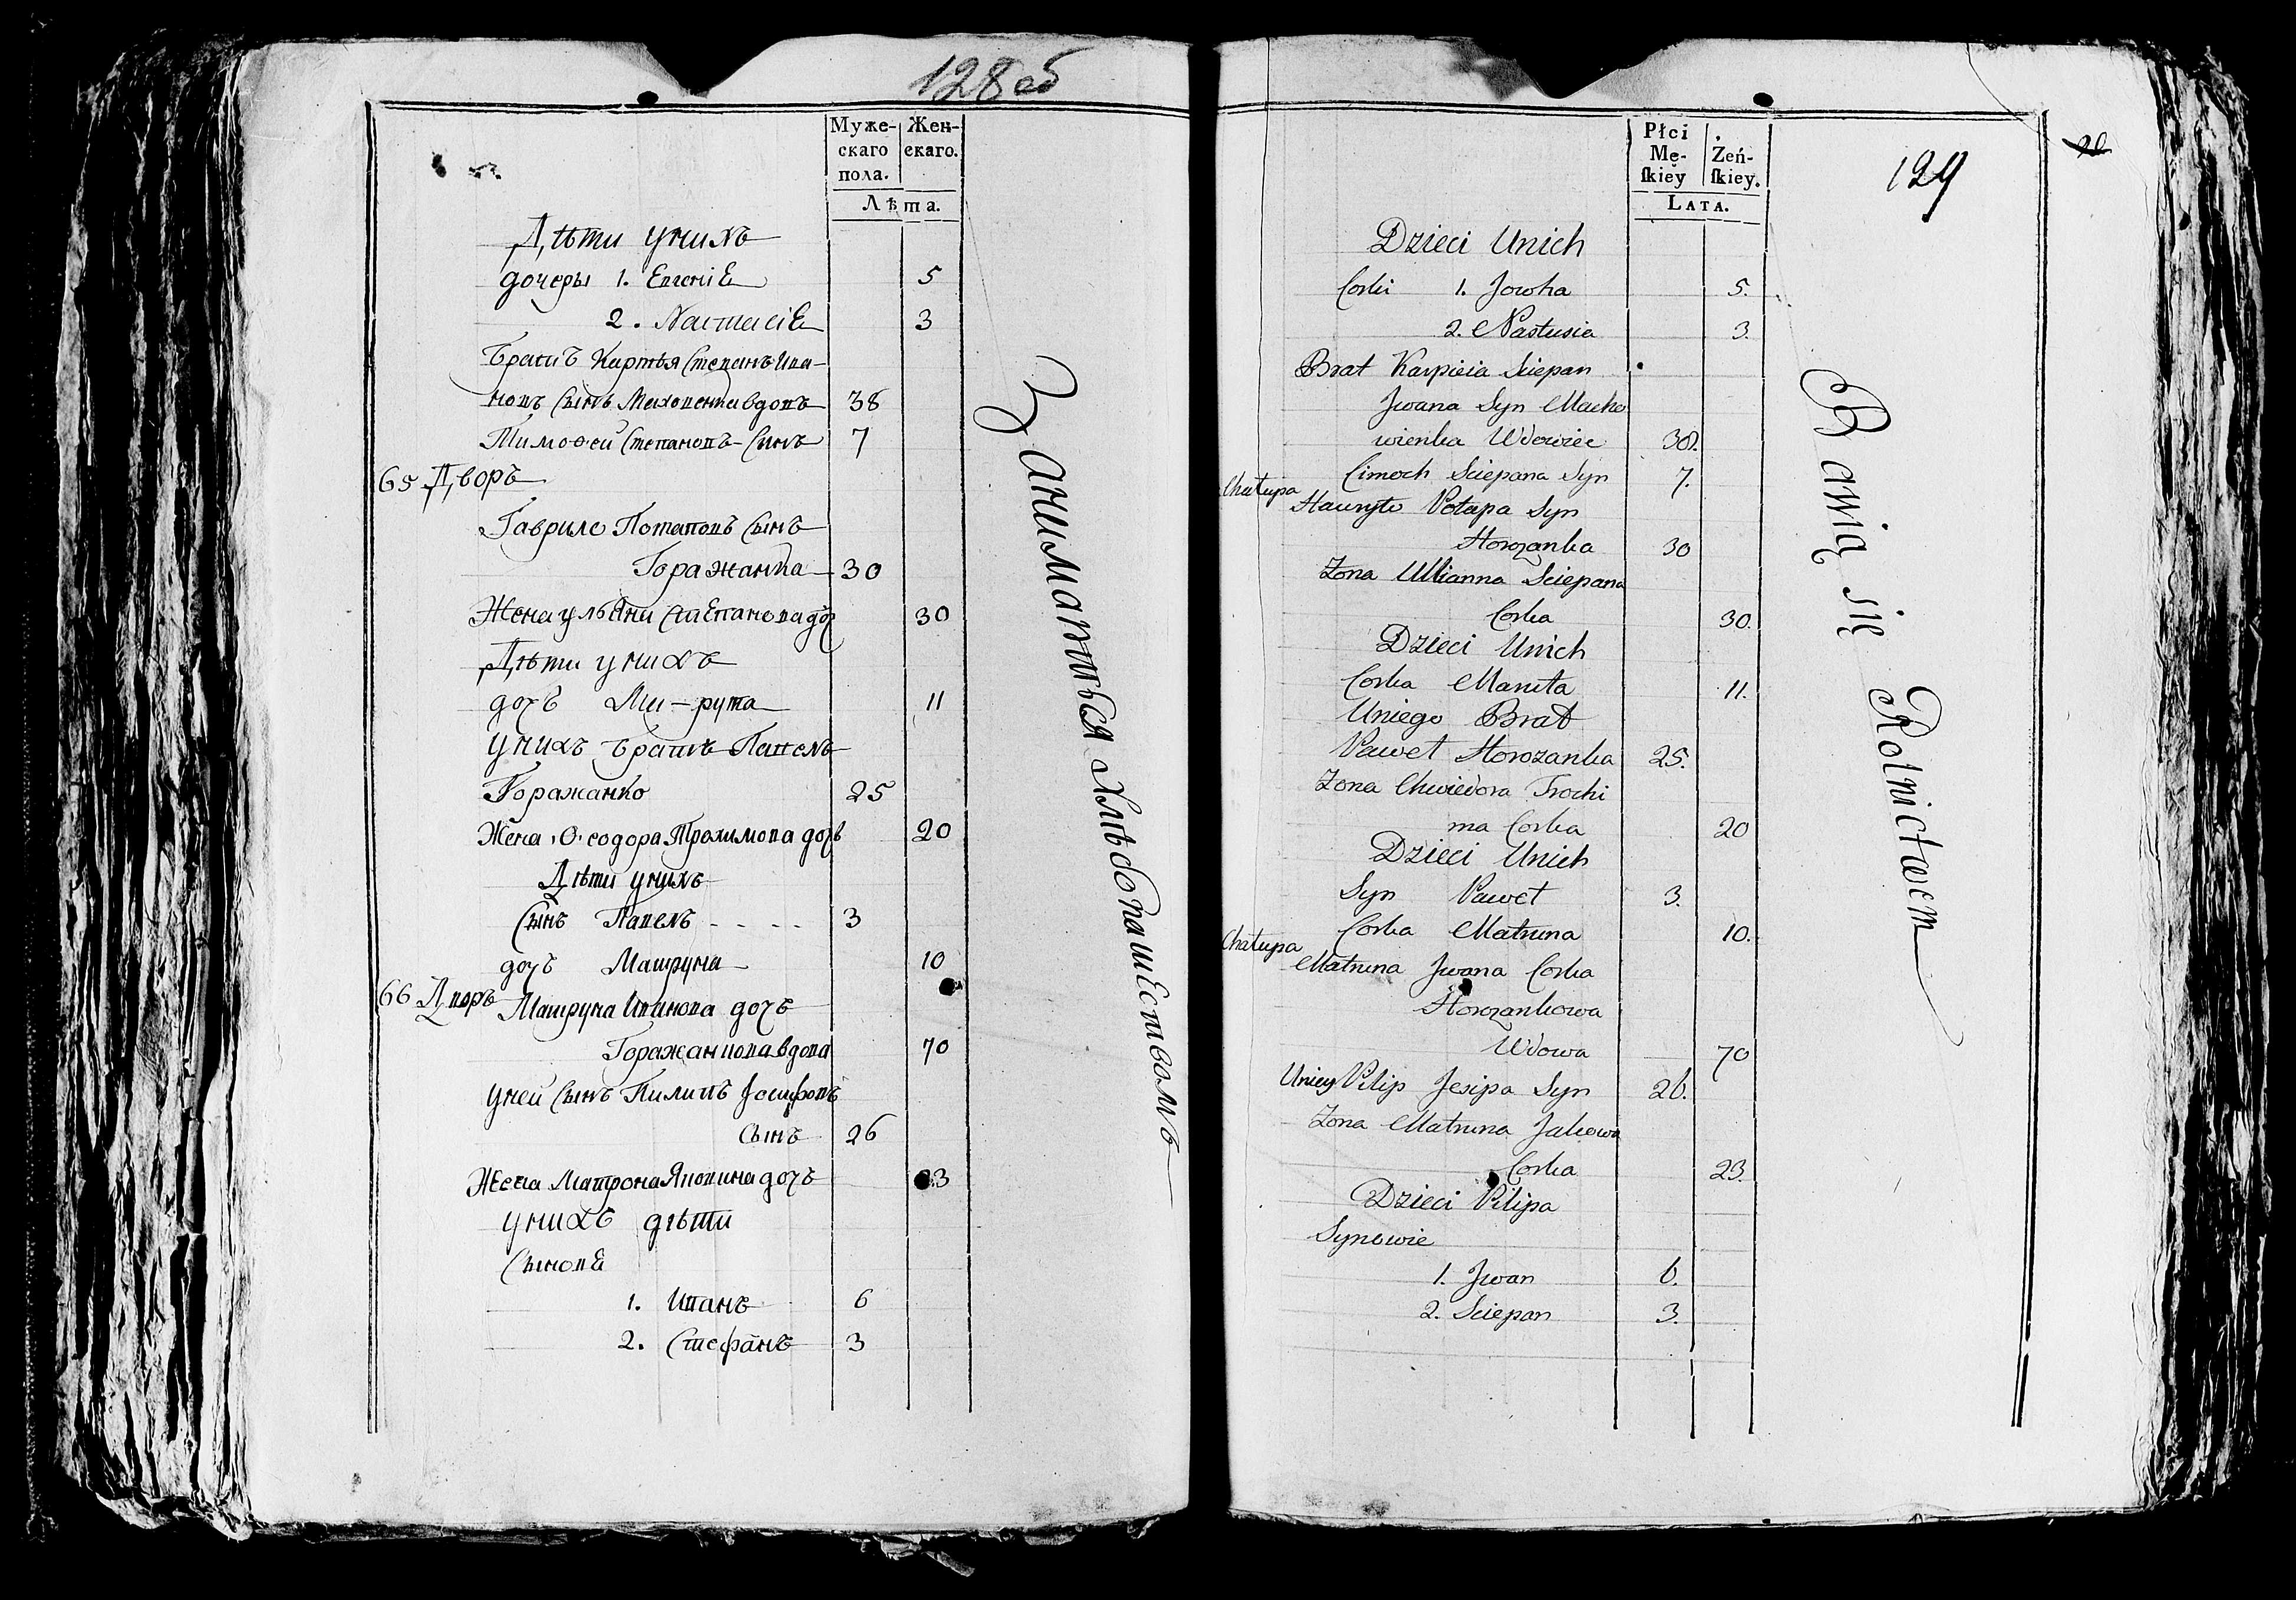 128 об
Муже-
скаго
пола.
Жен-
скаго.
Лѣта.
Дѣти унихъ
дочеры 1. Евгеніѣ 5
2. Настасіѣ 3
Братъ Карпѣя Степанъ Ива-
новъ Сынъ Маховенка вдовъ 38
Тимофей Степановъ Сынъ 7
65 Дворъ
Гаврило Потаповъ Сынъ
Горажанка 30
Жена ульяни Степанова доч 30
Дѣти унихъ
дочъ Ма-рута 11
унихъ братъ Павелъ
Горажанко 25
Жена Ѳеодора Трохимова дочъ 20
Дѣти унихъ
Сынъ Павелъ - - - - 3
дочъ Матруна 10
66 Дворъ Матруна Иванова дочъ
Горажанкова вдова 70
уней Сынъ Пилипъ Іосифовъ
сынъ 26
Жена Матрона Яковина дочъ 3
унихъ дѣти
Сыновѣ
1. Иванъ 6
2. Стефанъ 3
Заниматься хлѣбопашествомъ
Płci
Mę-
ſkiey
Żeń-
ſkiey.
LATA.
129
20
Dzieci Unich
Corki 1. Jowha 5.
2. Nastusia 3.
Brat Karpieia Sciepan
Jwana Syn Macho
wienka Wdowiec 38.
Cimoch Sciepana Syn 7.
Chałupa
Hauryło Potapa Syn
Horożanka 30
Żona Ullianna Sciepana
Corka 30.
Dzieci Unich
Corka Maruta 11.
Uniego Brat
Paweł Horożanka 25.
Żona Chwiedora Trochi
ma Corka 20
Dzieci Unich
Syn Paweł 3.
Corka Matruna 10.
Chałupa
Matruna Jwana Corka
Horożankowa
Wdowa 70
Uniey Pilip Jesipa Syn 26.
Żona Matruna Jakowa
Corka 23.
Dzieci Pilipa
Synowie
1. Jwan 6.
2. Sciepan 3.
Bawią się Rolnictwem